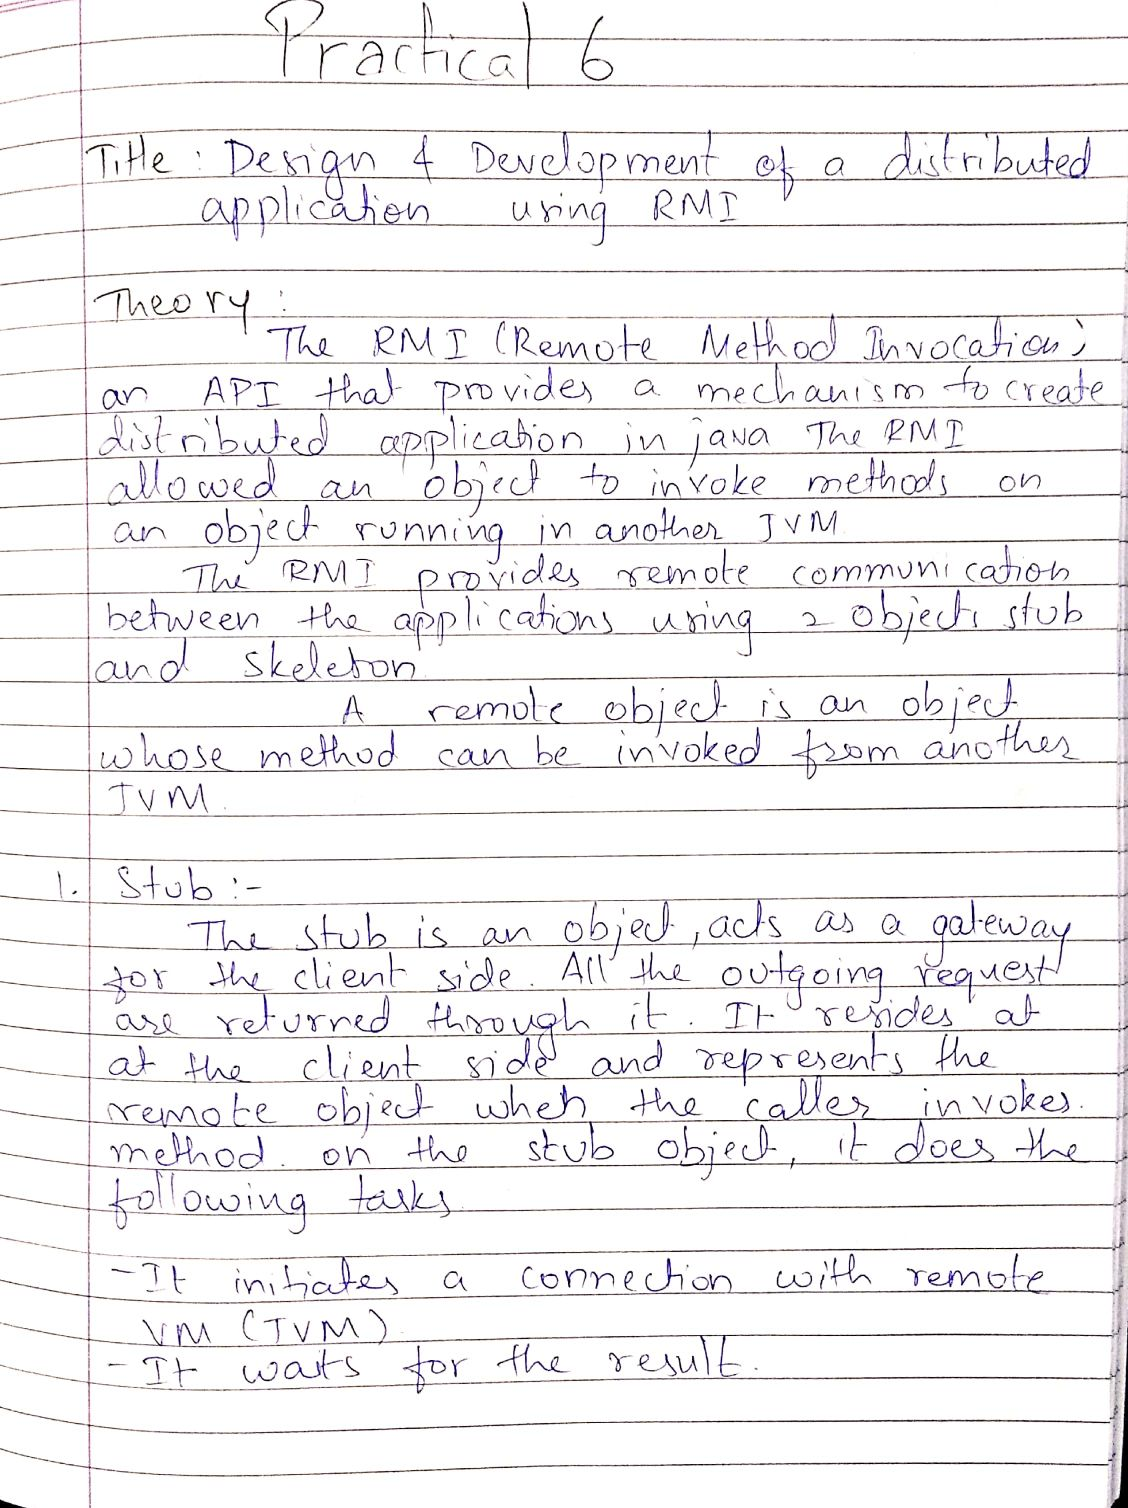 Practical 6
Title : Design & Development of a distributed
application using RMI
Theory :
The RMI (Remote Method Invocation)
an API that provides a mechanism to create
distributed application in java The RMI
allowed an object to invoke methods on
an object running in another JVM
The RMI provides remote communication
between the applications using 2 objects stub
and skeleton.
A remote object is an object
whose method can be invoked from another
JVM.
1. Stub :-
The stub is an object, acts as a gateway
for the client side. All the outgoing request
are returned through it. It resides at
at the client side and represents the
remote object when the caller invokes.
method. on the stub object, it does the
following tasks.
- It initiates a connection with remote
VM (JVM).
- It waits for the result.